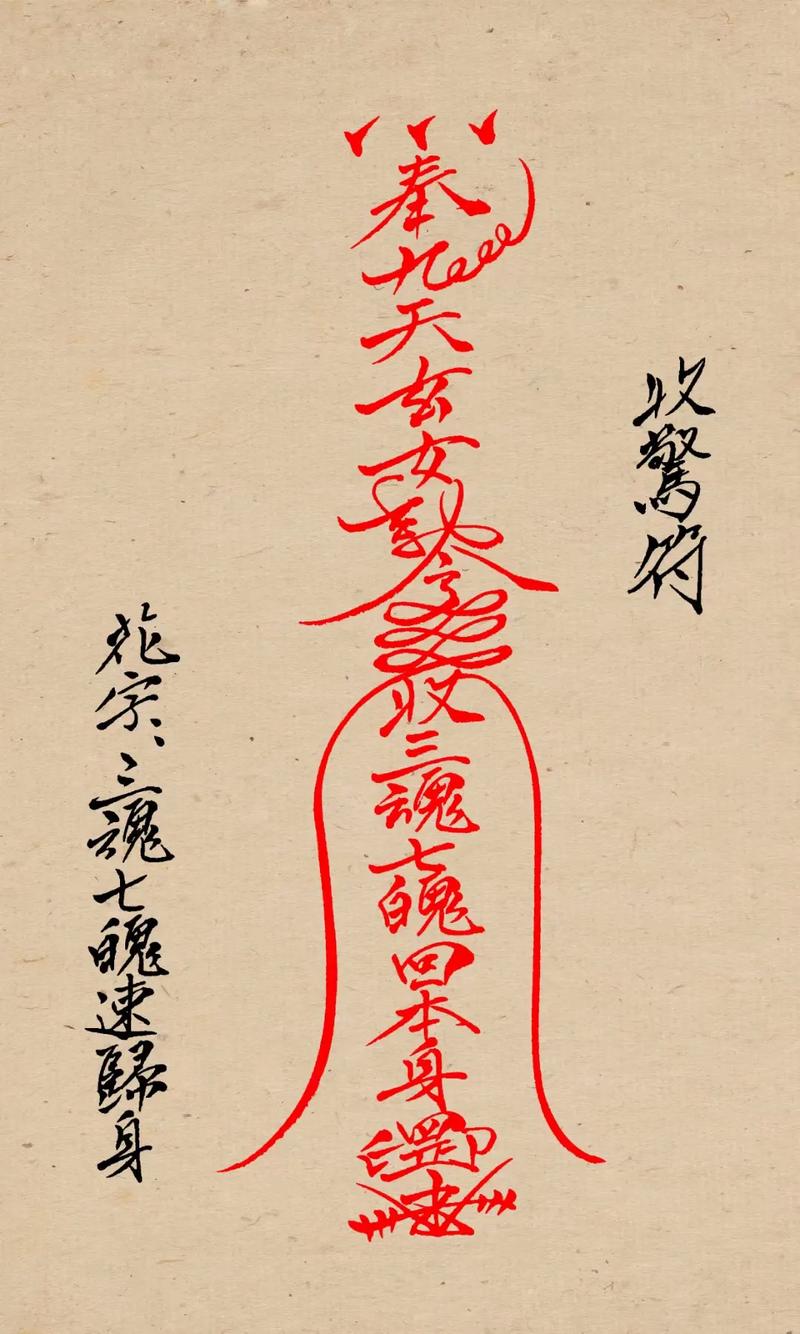 收驚符
奉九天玄女勅令收三魂七魄回本身罡印
花字、三魂七魄速歸身